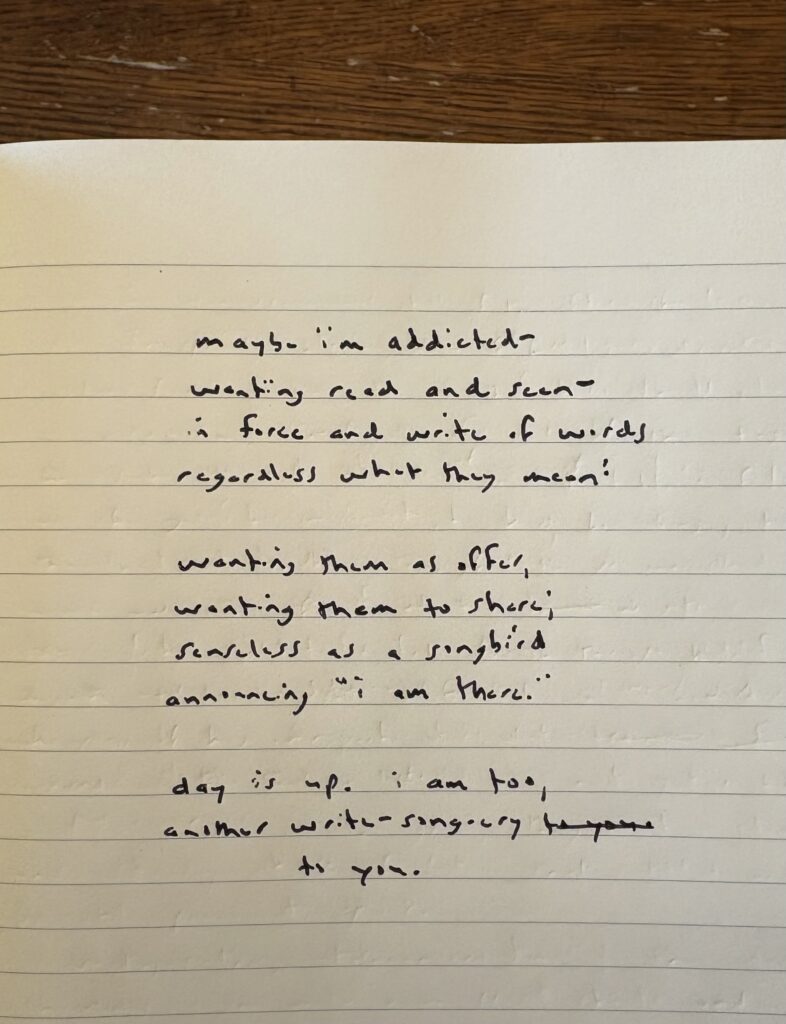 maybe i'm addicted-
wanting read and seen-
in force and write of words
regardless what they mean:

wanting them as offer,
wanting them to share;
senseless as a songbird
announcing "i am there."

day is up. i am too,
another write-song-cry
to you.